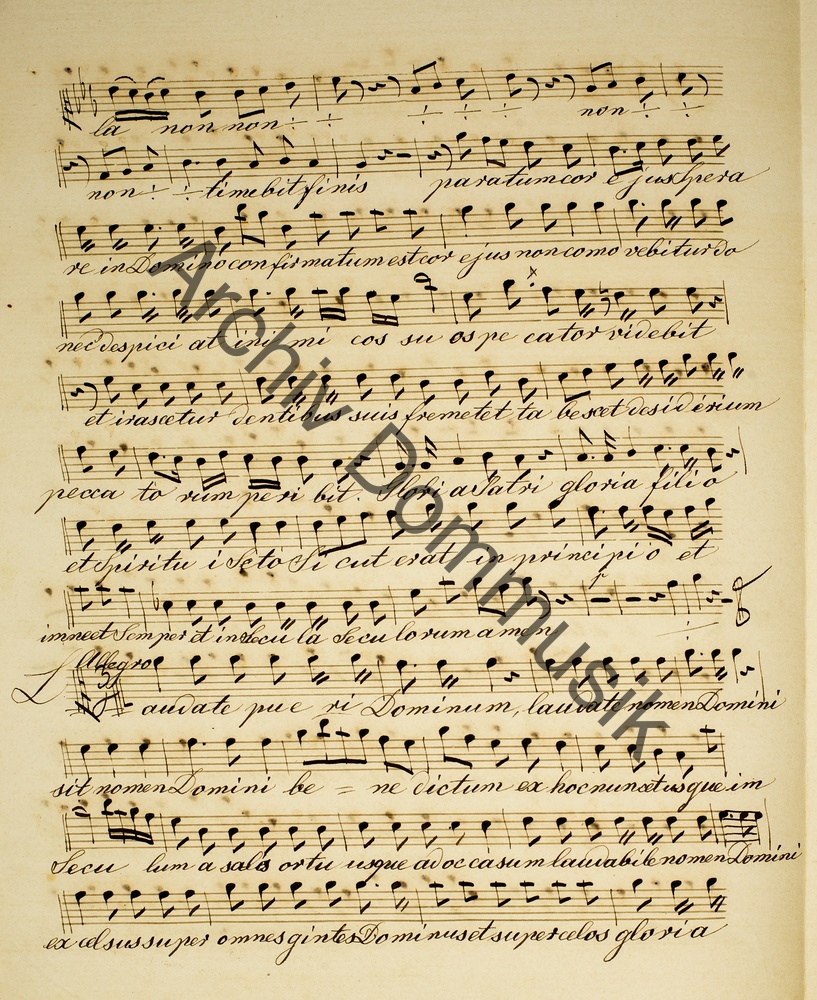 la non non ÷ ÷ ÷ ÷ ÷ non ÷ ÷
non ÷ ÷ timebit finis paratum cor ejus Spera
re in Domino confirmatum est cor ejus non como vebitur do
nec despici at ini mi cos su os pe cator videbit
et irascetur dentibus suis fremetet ta bescet desiderium
pecca to rum peri bit. Glori a Patri gloria fili o
et Spiritu i Scto Si cut erat in principi o et
im neet Semper et in Secu la Secu lorum amen
Allegro
Laudate pue ri Dominum, laudate nomen Domini
sit nomen Domini be = ne dictum ex hoc nunc etusque im
Secu lum a salis ortu usque ad occasum laudabile nomen Domini
ex celsus super omnes gintes Dominus et super celos gloria
Archiv Dommusik